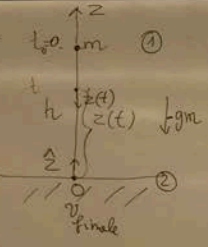 z
t=0. m ①
t
h ż(t)
z(t) ↓gm
ẑ
O ②
v finale